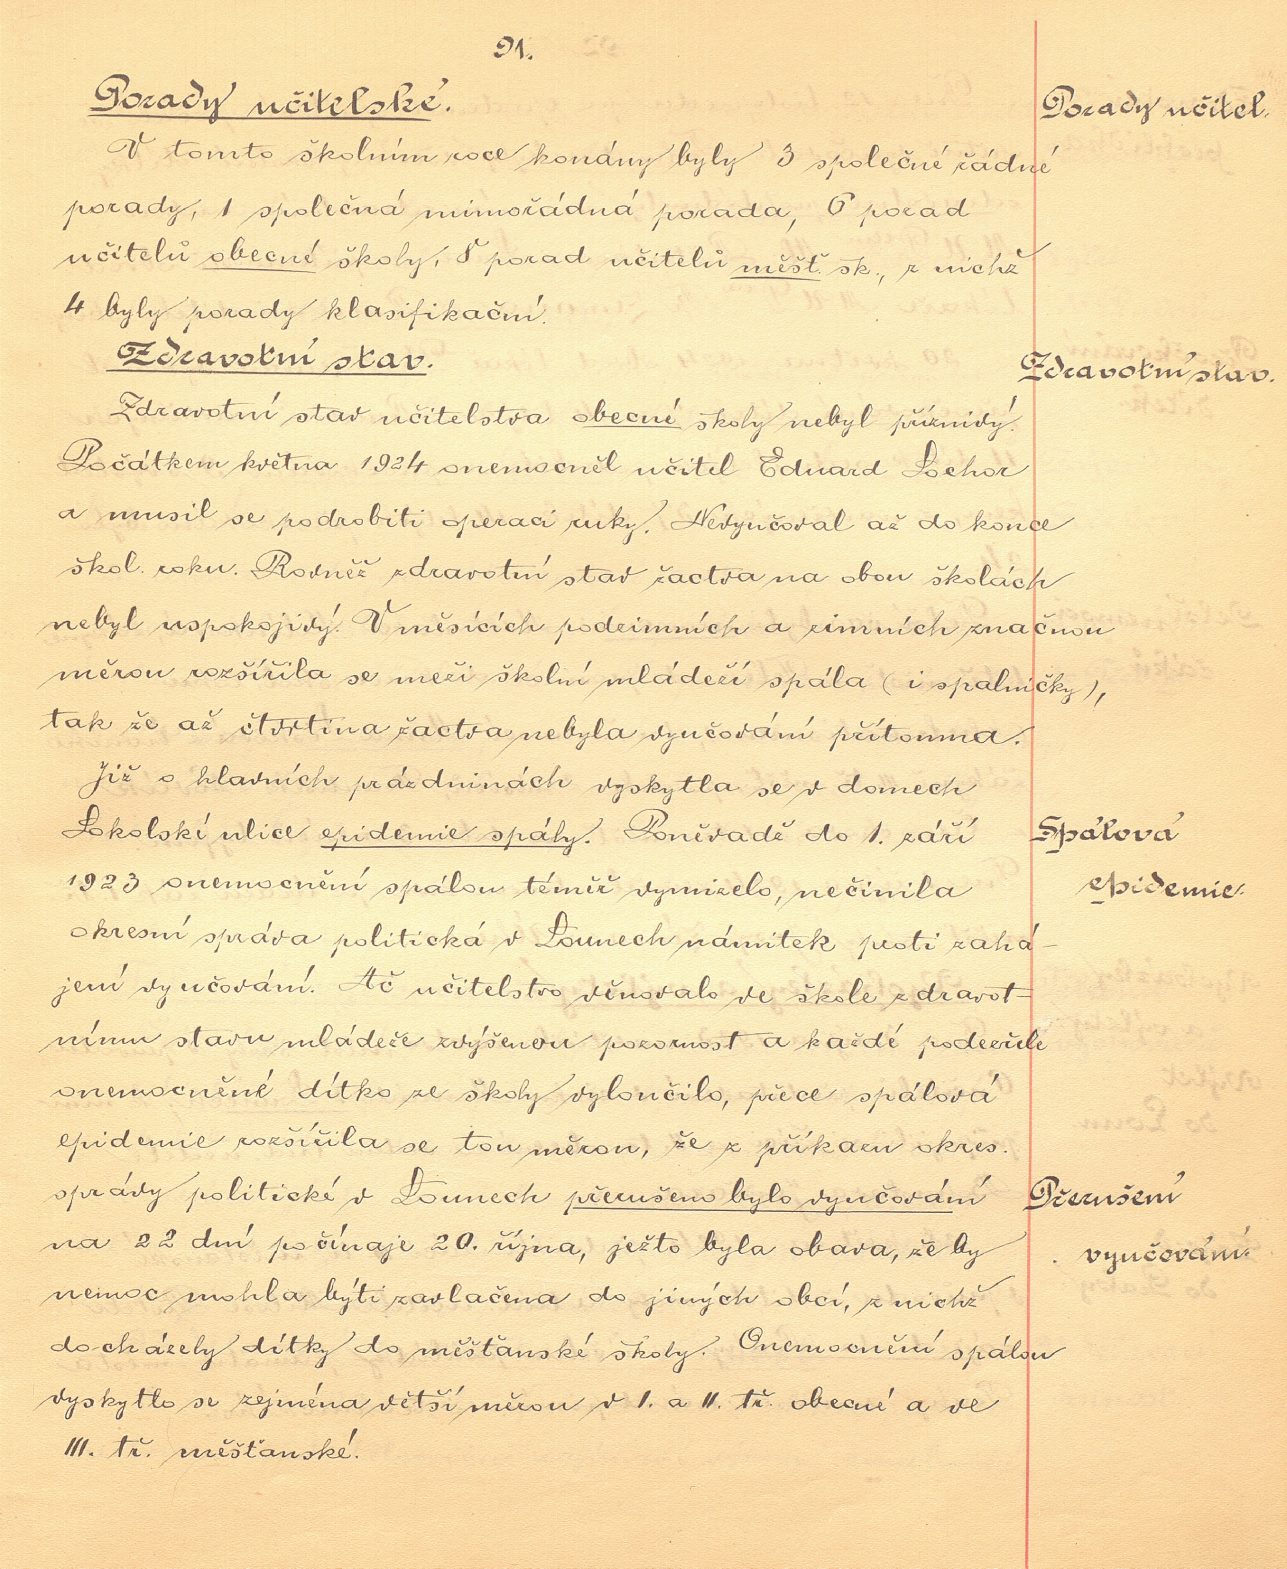 91.
Porady učitelské.
Porady učitel.
V tomto školním roce konány byly 3 společné řádné
porady, 1 společná mimořádná porada, 6 porad
učitelů obecné školy, 8 porad učitelů měšť. šk., z nichž
4 byly porady klasifikační.
Zdravotní stav.
Zdravotní stav.
Zdravotní stav učitelstva obecné školy nebyl příznivý.
Počátkem května 1924 onemocněl učitel Eduard
a musil se podrobiti operaci ruky. Nevyučoval až do konce
škol. roku. Rovněž zdravotní stav žactva na obou školách
nebyl uspokojivý. V měsících podzimních a zimních značnou
měrou rozšířila se mezi školní mládeží spála (i spalničky),
tak že až čtvrtina žactva nebyla vyučování přítomna.
Již o hlavních prázdninách vyskytla se v domech
Sokolské ulice epidemie spály. Poněvadž do 1. září
Spálová
1923 onemocnění spálou téměř vymizelo, nečinila
epidemie.
okresní správa politická v Lounech námitek proti zahá-
jení vyučování. Ač učitelstvo věnovalo ve škole zdravot-
nímu stavu mládeže zvýšenou pozornost a každé podezřele
onemocněné dítko ze školy vyloučilo, přece spálová
epidemie rozšířila se tou měrou, že z příkazu okres.
správy politické v Lounech přerušeno bylo vyučování
Přerušení
na 22 dní počínaje 20. října, ježto byla obava, že by
vyučování.
nemoc mohla býti zavlačena do jiných obcí, z nichž
docházely dítky do měšťanské školy. Onemocnění spálou
vyskytlo se zejména větší měrou v I. a II. tř. obecné a ve
III. tř. měšťanské.